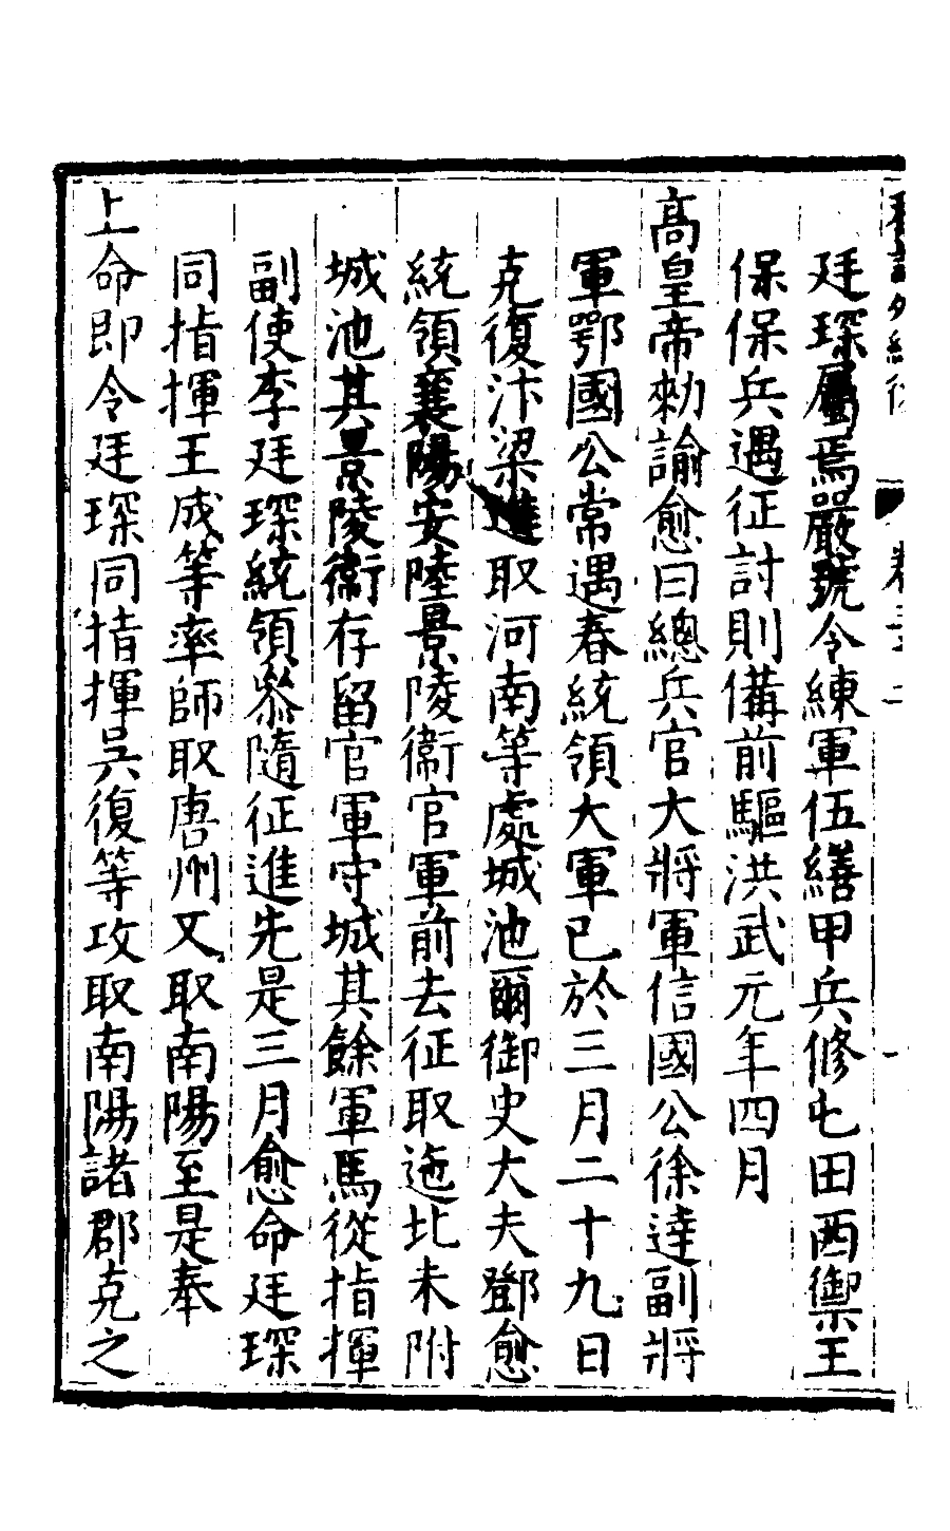 廷琛屬焉嚴號令練軍伍繕甲兵修屯田西禦王
保保兵遇征討則備前驅洪武元年四月
高皇帝勑諭愈曰總兵官大將軍信國公徐達副將
軍鄂國公常遇春統領大軍已於三月二十九日
克復汴梁進取河南等處城池爾御史大夫鄧愈
統領襄陽安陸景陵衞官軍前去征取迤北未附
城池其景陵衞存留官軍守城其餘軍馬從指揮
副使李廷琛統領叅隨征進先是三月愈命廷琛
同指揮王成等率師取唐州又取南陽至是奉
上命即令廷琛同指揮吳復等攻取南陽諸郡克之